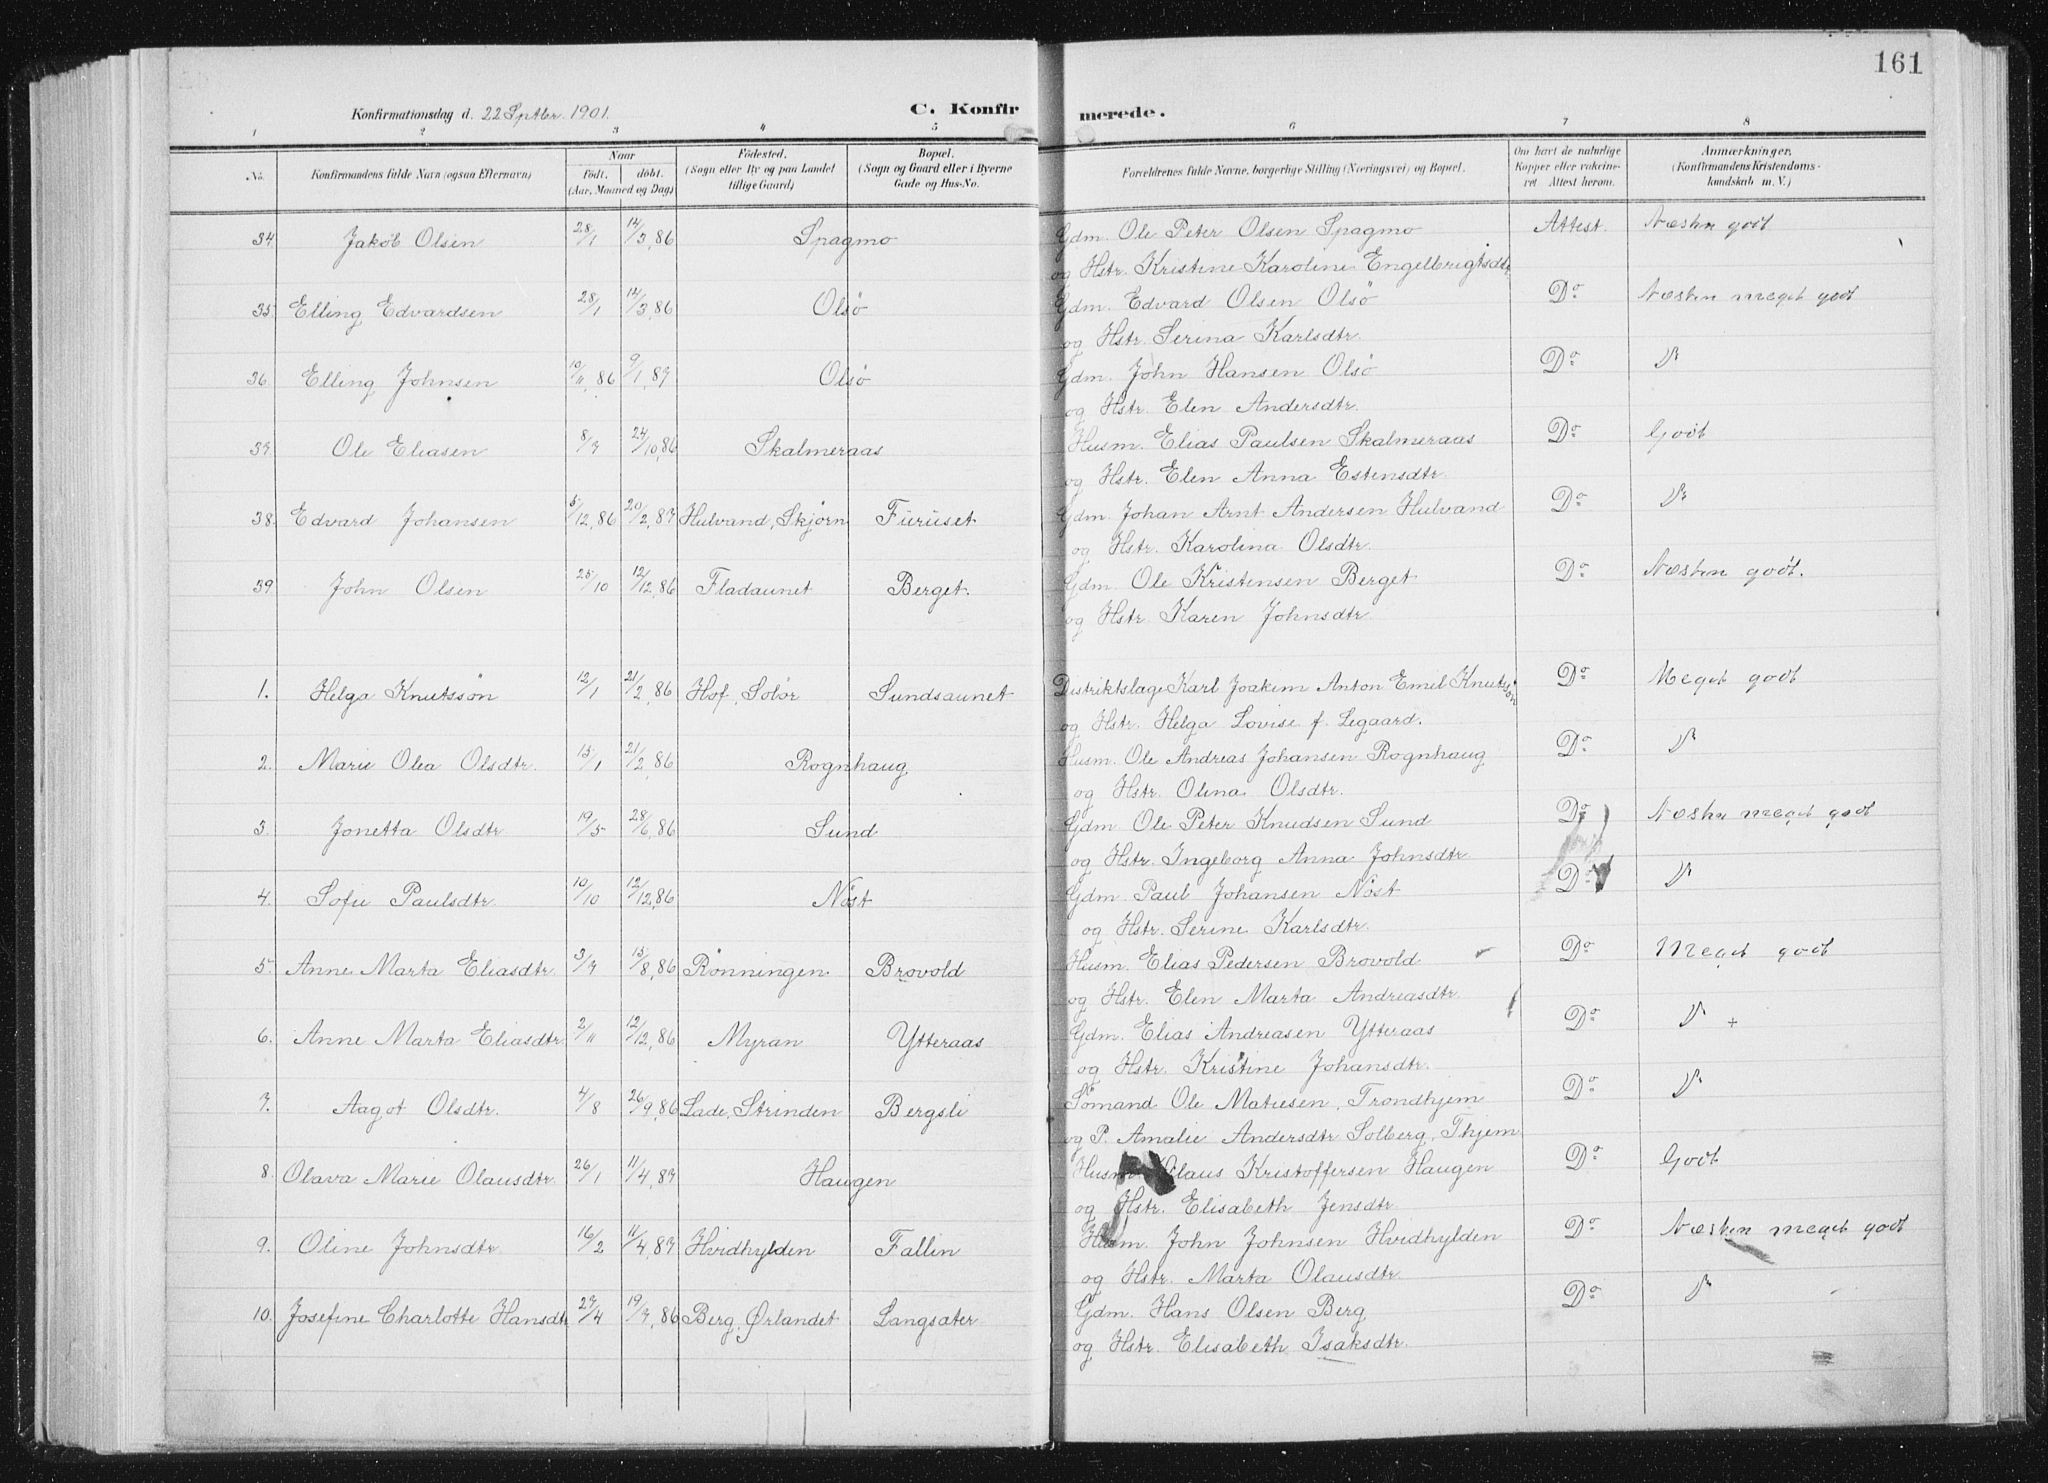 161
Konfirmationsdag d. 22 Septbr. 1901. C. Konfir merede.
1 2 3 4 5 6 7 8
No. Konfirmandens fulde Navn (ogsaa Efternavn) Naar födt. döbt. (Aar, Maaned og Dag) Födested. (Sogn eller By og paa Landet tillige Gaard) Bopæl. (Sogn og Gaard eller i Byerne Gade og Hus-No. Forældrenes fulde Navne, borgerlige Stilling (Næringsvei) og Bopæl. Om havt de naturlige Kopper eller vaccineret Attest herom. Anmærkninger. (Konfirmandens Kristendomskundskab m. V.)
34 Jakob Olsen 28/1 14/3,86 Spagmo Gdm. Ole Peter Olsen Spagmo Attest. Næsten godt
og Hstr. Kristine Karoline Engelbrigtsdtr
35 Elling Edvardsen 28/1 14/3,86 Olsö Gdm. Edvard Olsen Olsö Do Næsten meget godt
og Hstr. Serina Karlsdtr.
36 Elling Johnsen 19/11,86 9/1,87 Olsö Gdm. John Hansen Olsö Do
og Hstr. Elen Andersdtr.
37. Ole Eliasen 8/7 24/10,86 Skalmeraas Husm. Elias Paulsen Skalmeraas Do Godt
og Hstr. Elen Anna Estensdtr.
38. Edvard Johansen 5/12,86 20/2,87 Hulvand, Skjörn Furuset Gdm. Johan Arnt Andersen Hulvand Do
og Hstr. Karolina Olsdtr.
39 John Olsen 25/10 12/12,86 Fladaunet Berget. Gdm. Ole Kristensen Berget Do Næsten godt.
og Hstr. Karen Johnsdtr.
1. Helga Knutssön 12/1 21/2,86 Hof, Solör Sundsaunet Distriktslæge Karl Joakim Anton Emil Knutssön Do Meget godt
og Hstr. Helga Lovise f. Legaard.
2. Marie Olea Olsdtr. 15/1 21/2,86 Rognhaug Husm. Ole Andreas Johansen Rognhaug Do
og Hstr. Olina Olsdtr.
3. Jonetta Olsdtr 19/5 28/6,86 Sund Gdm Ole Peter Knudsen Sund Do Næsten meget godt
og Hstr. Ingeborg Anna Johnsdtr.
4. Sofie Paulsdtr. 10/10 12/12,86 Nöst Gdm. Paul Johansen Nöst Do
og Hstr. Serine Karlsdtr.
5. Anne Marta Eliasdtr. 3/7 15/8,86 Rönningen Brovold Husm. Elias Pedersen Brovold Do Meget godt
og Hstr. Elen Marta Andreasdtr.
6. Anne Marta Eliasdtr. 2/11 12/12,86 Myran Ytteraas Gdm. Elias Andreasen Ytteraas Do +
og Hstr. Kristine Johansdtr.
7. Aagot Olsdtr. 4/8 26/9,86 Lade, Strinden Bergsli Sömand Ole Matiesen, Trondhjem Do
og P. Amalie Andersdtr Solberg, Thjem.
8. Olava Marie Olausdtr. 26/1 11/4,87 Haugen Husm. Olaus Kristoffersen Haugen Do Godt
og Hstr. Elisabeth Jensdtr.
9. Oline Johnsdtr. 16/2 11/4,87 Hvidhylden Fallin Husm. John Johnsen Hvidhylden Do Næsten meget godt
og Hstr. Marta Olausdtr.
10. Josefine Charlotte Hansdtr 27/4 19/7,86 Berg, Ørlandet Langsater Gdm. Hans Olsen Berg Do
og Hstr. Elisabeth Isaksdtr.